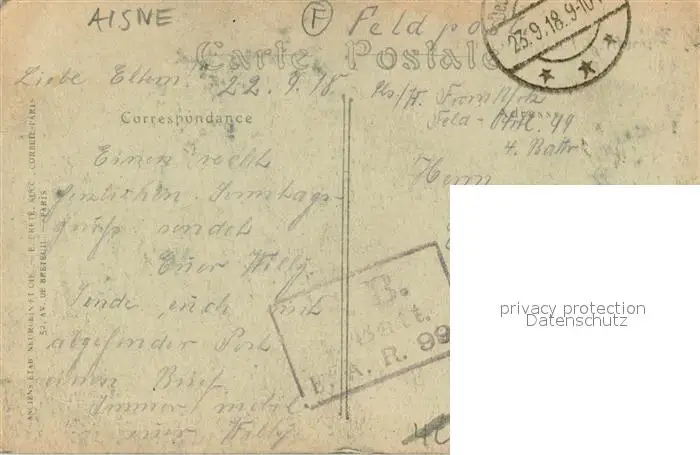 AISNE
F
Feldpost
23.9.18.9-10
Carte Postale
Liebe Eltern! 22.9.18.
Correspondance
Einen recht
herzlichen Sonntags-
gruß sendet
Euer Willy.
Sende euch mit
abgehender Post
einen Brief
Immer
euer Willy
Adresse
Feld-Artl. 99
4. Battr.
Herrn
B.
Batt.
F. A. R. 99
ANCIENS ETAB. NEURDEIN ET CIE. — E. CRÉTÉ, SUCC. CORBEIL-PARIS
52, AV. DE BRETEUIL — PARIS
privacy protection
Datenschutz